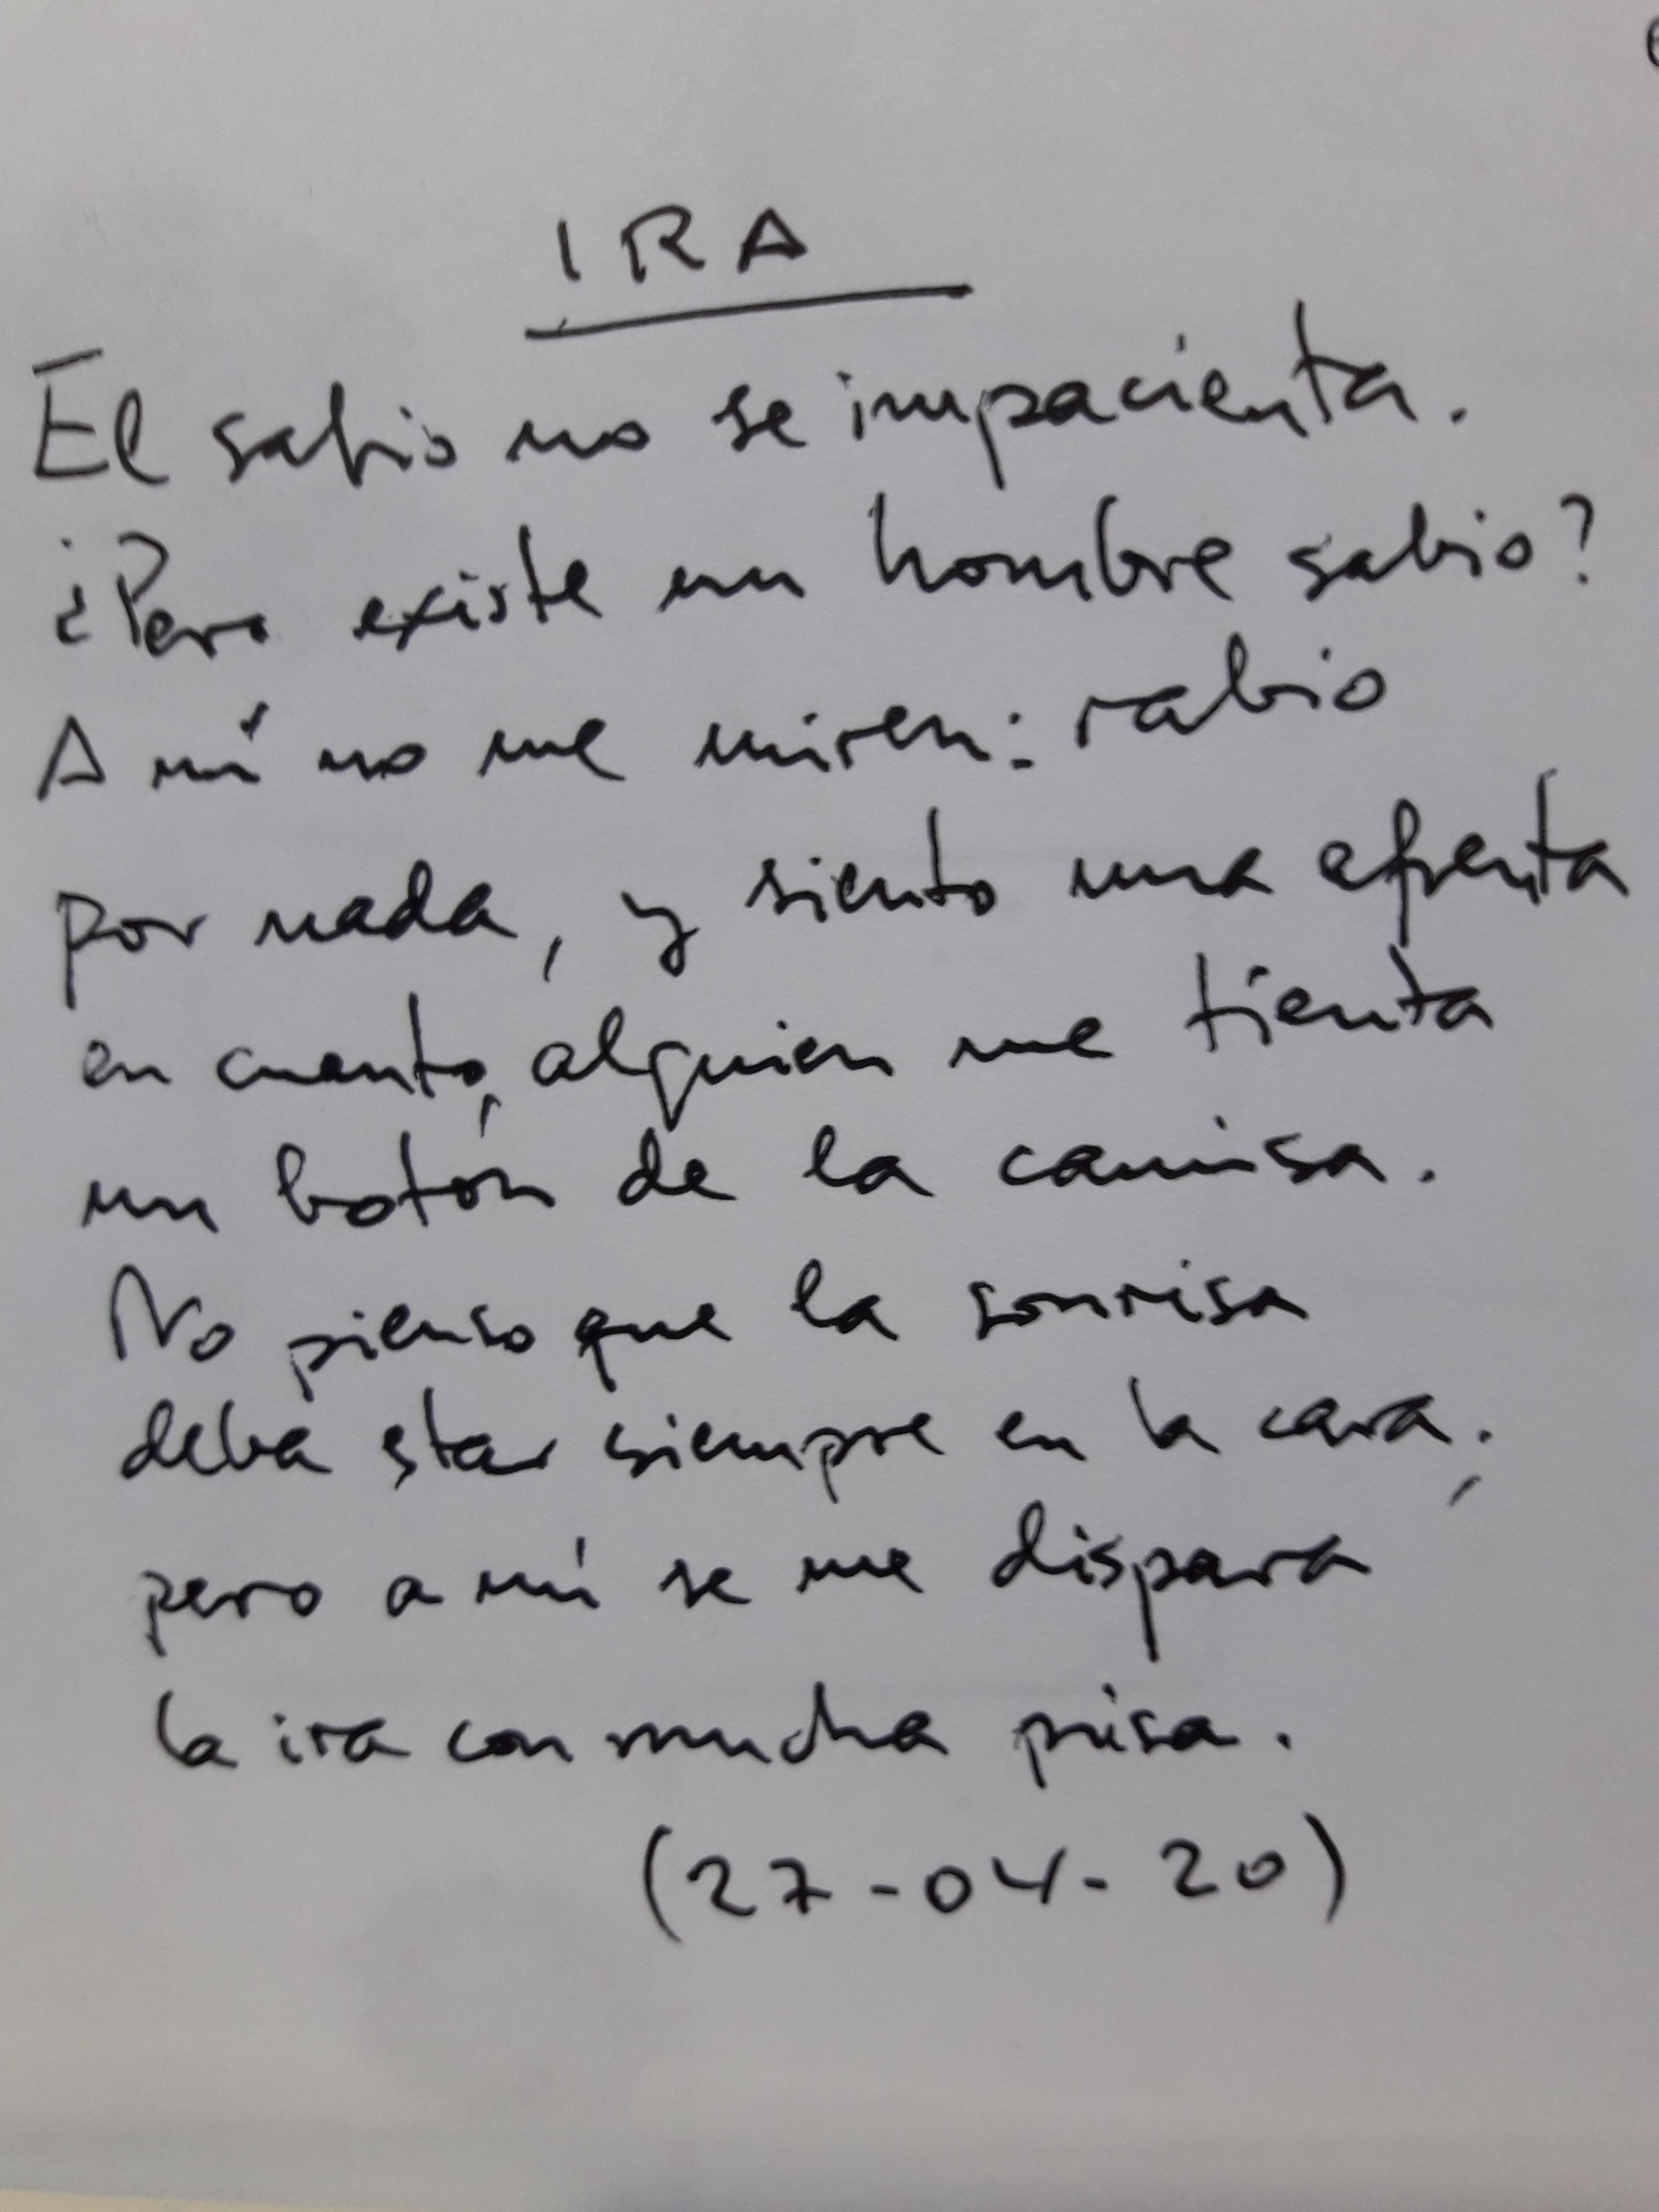 IRA
El sabio no se impacienta.
¿Pero existe un hombre sabio?
A mí no me miren: rabio
por nada, y siento una afrenta
en cuanto, alguien me tienta
un botón de la camisa.
No pienso que la sonrisa
deba estar siempre en la cara;
pero a mí se me dispara
la ira con mucha prisa.
(27-04-20)